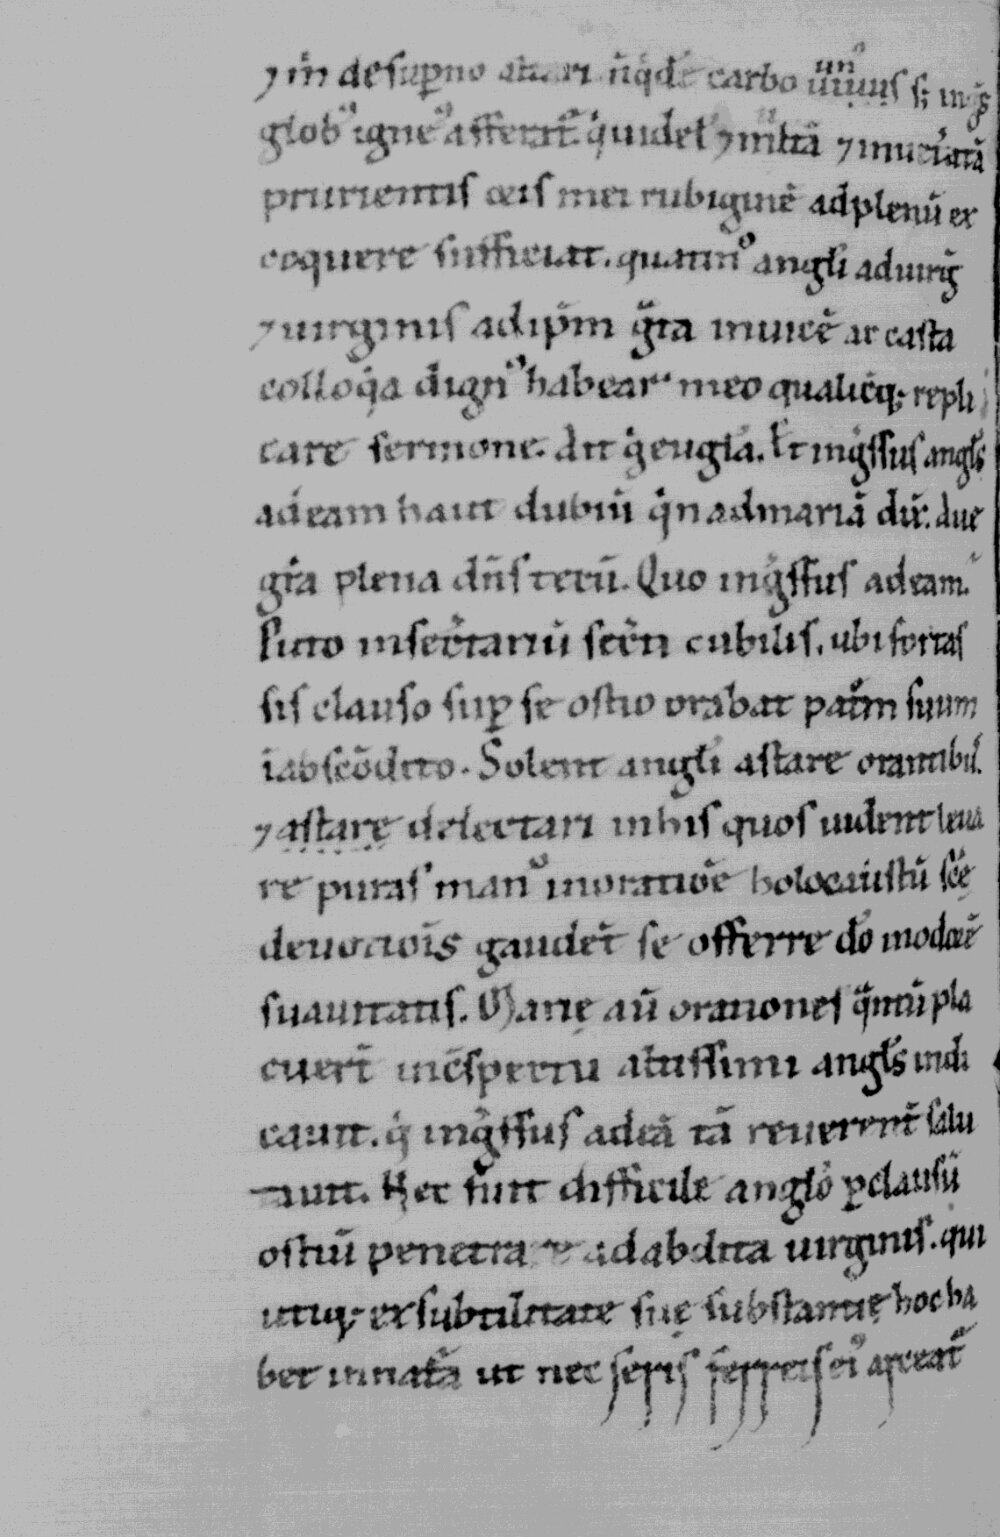 ⁊ m̊ de sup̱no altari n̄ q̇dē carbo un⁹ s; ing̃s
glob⁹ igne⁹ afferat᷑. q̇ uidel᷑ ⁊ mltā ⁊ inuet᷑atā
prurientis oris mei rubiginē ad plenū ex
coquere sufficiat. quatin⁹ angl̓i ad uirg̃
⁊ uirginis ad ip̄m gr̃a inuicē ac casta
colloq̇a dign⁹ habear meo qualicūq; repli
care sermone. Ait g̊ eugl̓a. Et ing̃ssus angl̓s
ad eam haut dubiū q̇n ad mariā dix̄. Aue
gr̃a plena dn̄s tecū. Quo ing̃ssus ad eam.
Puto in secr̃tariū secr̃ti cubilis. ubi fortas
sis clauso sup̱ se ostio orabat pat᷑m suum
ī abscōdito. Solent angl̓i astare orantibus.
⁊ astare delectari in his quos uident leua
re puras man⁹ in oratiōe holocaustū sc̄ę
deuotiōis gaudet᷑ se offerre dō in odorē
suauitatis. Marię aū orationes q̃ntū pla
cuer̄t in c̄spectu altissimi angl̓s indi
cauit. q̇ ing̃ssus ad eā tā reuerent᷑ salu
tauit. Nec fuit difficile anglo p̱ clausū
ostiū penetrare ad abdita uirginis. qui
utiq; ex subtilitate suę substantię hoc ha
bet innatū ut nec seris ferreis ei⁹ arceat᷑